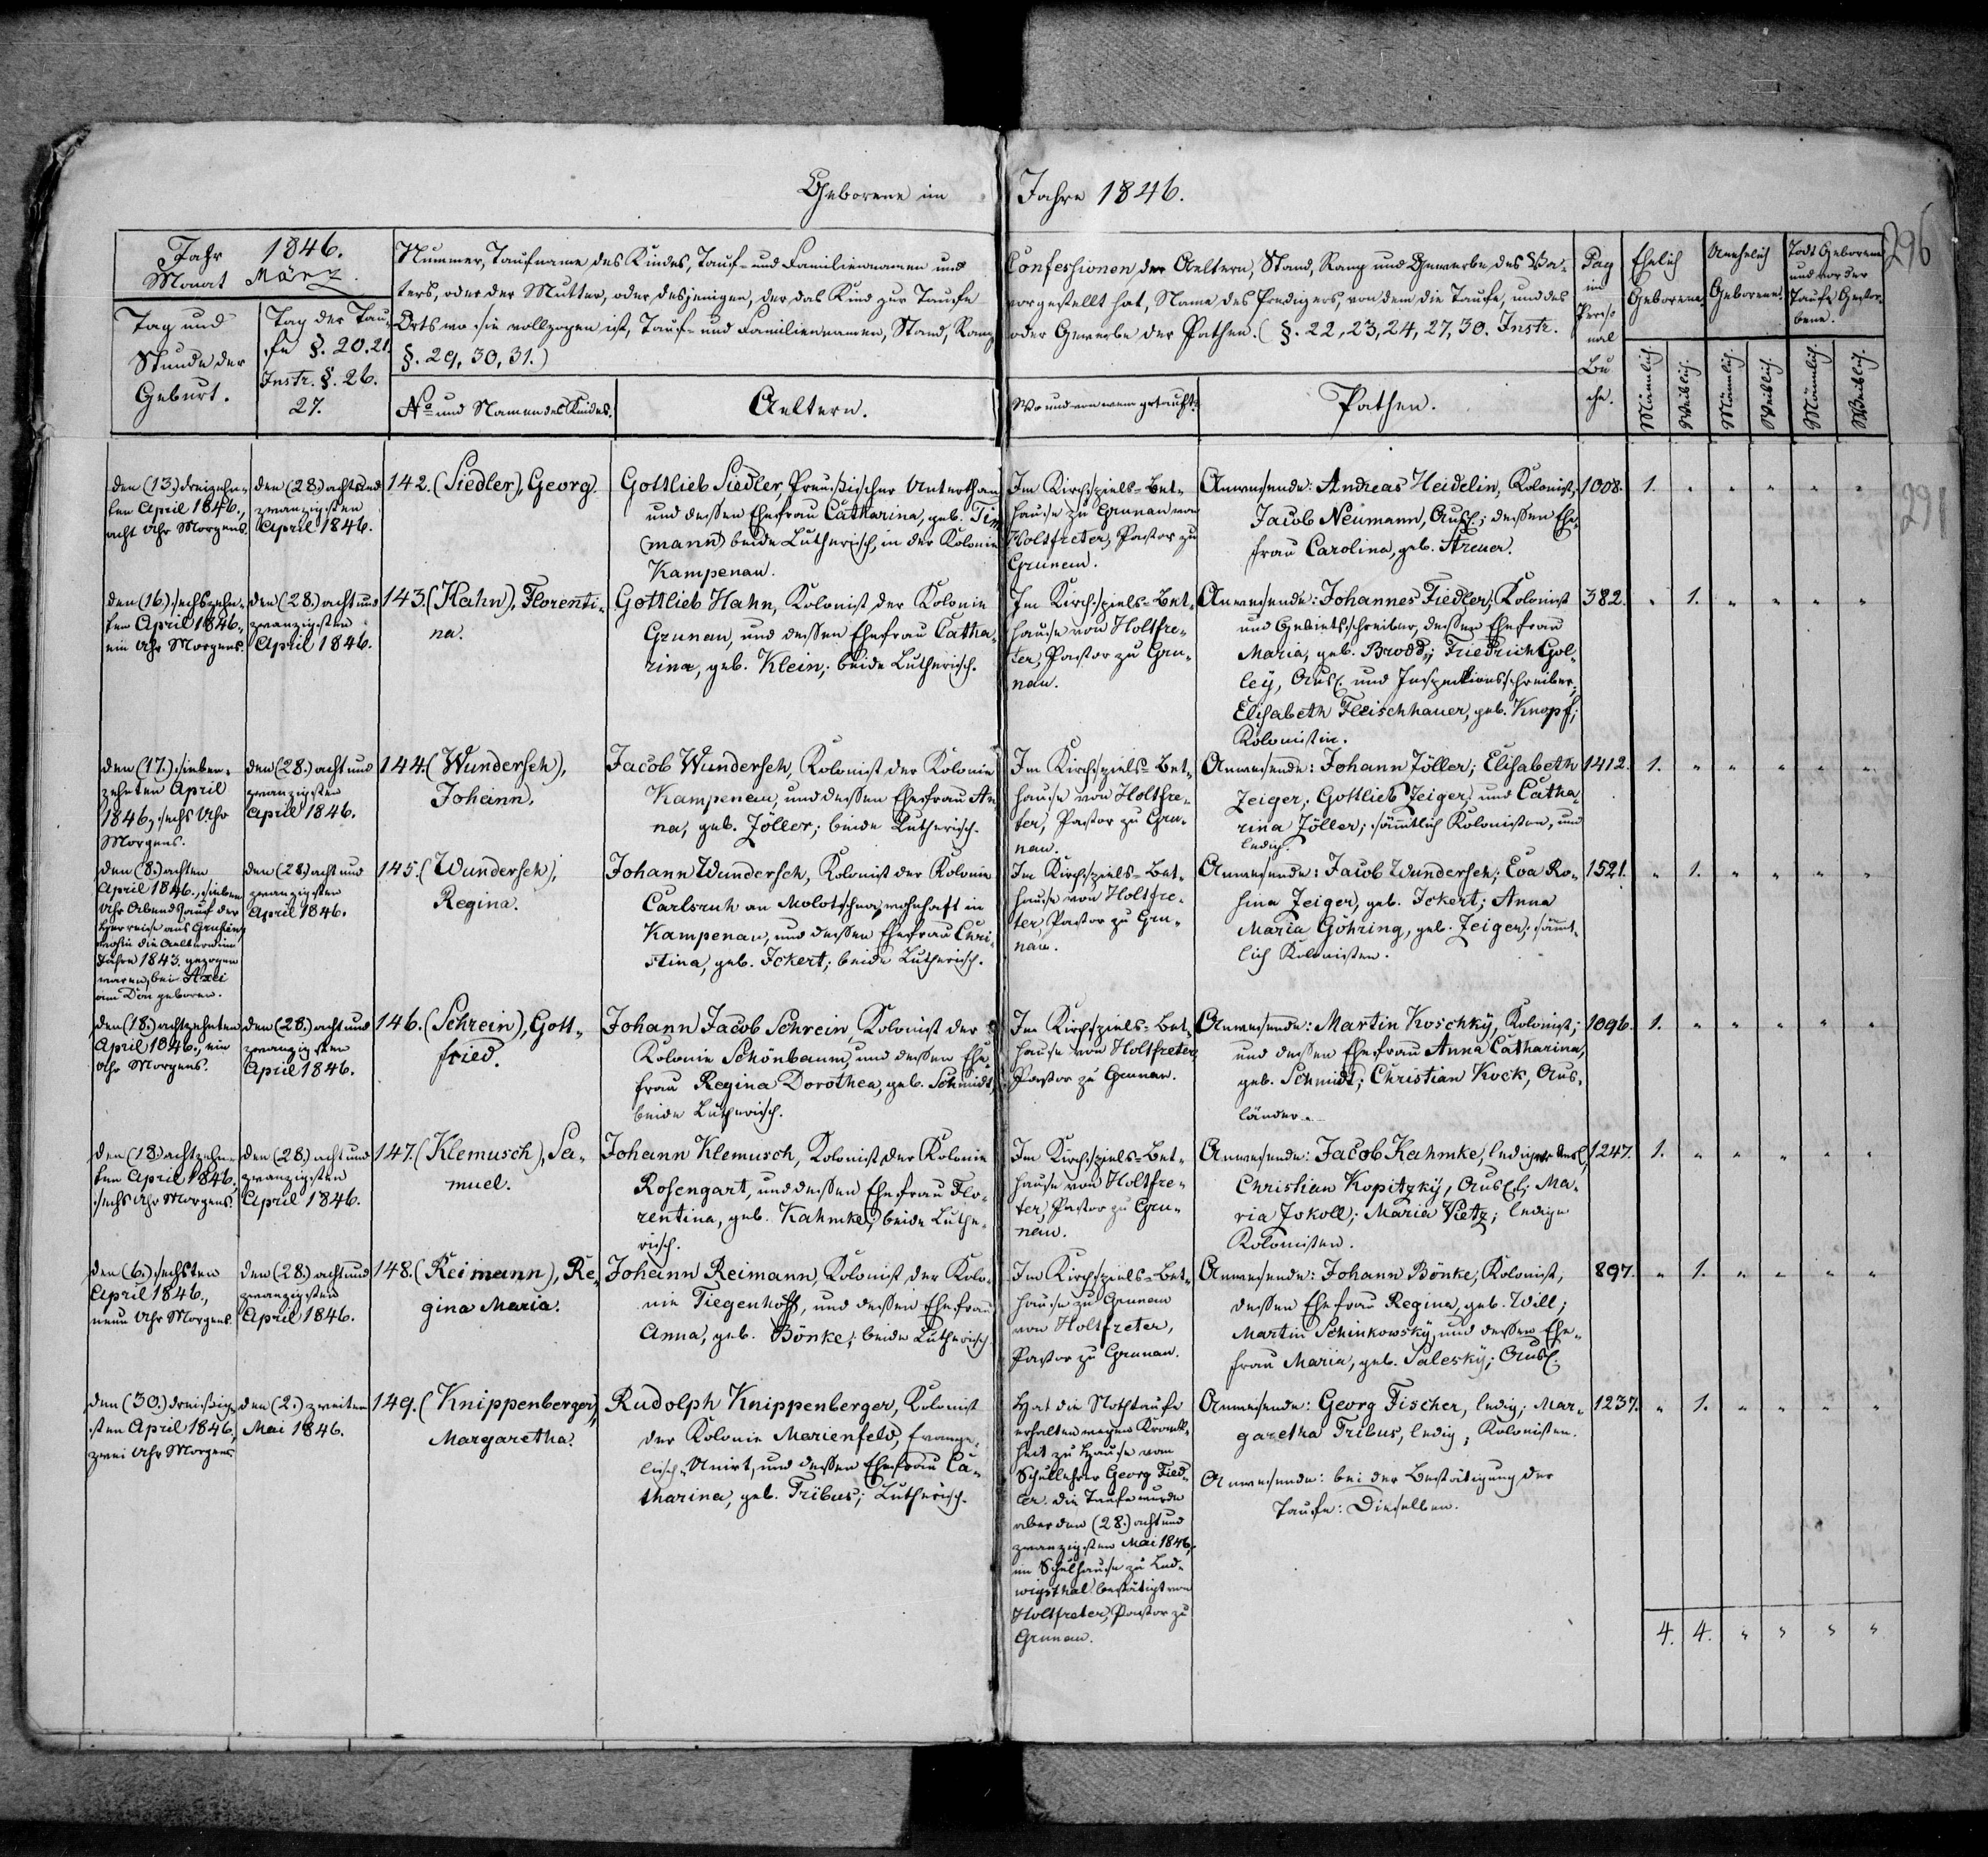 Geborene im Jahre 1846.
296
291
Jahr 1846.
Monat März.
Tag und
Stunde der
Geburt.
Tag der Tau-
fe §. 20. 21.
Instr. §. 26.
27.
Nummer, Taufname des Kindes, Tauf- und Familiennamen und
ters, oder der Mutter, oder desjenigen, der das Kind zur Taufe
Orts wo sie vollzogen ist, Tauf- und Familiennamen, Stand, Rang
§. 29, 30, 31.)
No und Namen des Kindes.
Aeltern.
Confessionen der Aeltern, Stand, Rang und Gewerbe des Va-
vorgestellt hat, Name des Predigers, von dem die Taufe, und des
oder Gewerbe der Pathen. (§. 22, 23, 24, 27, 30. Instr.
Wo und von wem getauft.
Pathen.
Pag
im
Perso
nal
Bu
che.
Ehelich
Geborene.
Unehelich
Geborene.
Todt Geborene
und vor der
Taufe Gestor-
bene.
Männlich.
Weiblich.
Männlich.
Weiblich.
Männlich.
Weiblich.
den (13.) dreizehn-
ten April 1846.,
acht Uhr Morgens.
den (28.) achtund
zwanzigsten
April 1846.
142. (Siedler), Georg.
Gottlieb Siedler, Preußischer Unterthan
und dessen Ehefrau Catharina, geb. Tim
(mann) beide Lutherisch, in der Kolonie
Kampenau.
Im Kirchspiels-Bet-
hause zu Grunau von
Holtfreter, Pastor zu
Grunau.
Anwesende: Andreas Heidelin, Kolonist;
Jacob Neumann, Ausl.; dessen Ehe-
frau Carolina, geb. Treuer.
1008. 1. " " " " "
den (16.) sechszehn-
ten April 1846.,
ein Uhr Morgens.
den (28.) acht und
zwanzigsten
April 1846.
143. (Hahn), Florenti-
na.
Gottlieb Hahn, Kolonist der Kolonie
Grunau, und dessen Ehefrau Catha-
rina, geb. Klein; beide Lutherisch.
Im Kirchspiels-Bet-
hause von Holtfre-
ter, Pastor zu Gru-
nau.
Anwesende: Johannes Fiedler, Kolonist
und Gebietsschreiber, dessen Ehefrau
Maria, geb. Brodd; Friedrich Gol-
ley, Ausl. und Inspektionsschreiber;
Elisabeth Fleischhauer, geb. Knopf;
Kolonistin.
382. " 1. " " " "
den (17.) sieben-
zehnten April
1846, sechs Uhr
Morgens.
den (28.) acht und
zwanzigsten
April 1846.
144. (Wundersch),
Johann.
Jacob Wundersch, Kolonist der Kolonie
Kampenau, und dessen Ehefrau An-
na, geb. Zöller; beide Lutherisch.
Im Kirchspiels-Bet-
hause von Holtfre-
ter, Pastor zu Gru-
nau.
Anwesende: Johann Zöller; Elisabeth
Zeiger; Gottlieb Zeiger, und Catha-
rina Zöller; sämmtlich Kolonisten, und
ledig.
1412. 1. " " " " "
den (8.) achten
April 1846., sieben
Uhr Abends, auf der
Herreise aus Grusien,
wohin die Aeltern im
Jahre 1843. gezogen
waren, bei Axei
am Don geboren.
den (28.) acht und
zwanzigsten
April 1846.
145. (Wundersch),
Regina.
Johann Wundersch, Kolonist der Kolonie
Carlsruh an Molotschna, wohnhaft in
Kampenau, und dessen Ehefrau Chri-
stina, geb. Ickert; beide Lutherisch.
Im Kirchspiels-Bet-
hause von Holtfre-
ter, Pastor zu Gru-
nau.
Anwesende: Jacob Wundersch; Eva Ro-
sina Zeiger, geb. Ickert; Anna
Maria Göhring, geb. Zeiger; sämmt-
lich Kolonisten.
1521. " 1. " " " "
den (18.) achtzehnten
April 1846., ein
Uhr Morgens.
den (28.) acht und
zwanzigsten
April 1846.
146. (Schrein), Gott-
fried.
Johann Jacob Schrein, Kolonist der
Kolonie Schönbaum, und dessen Ehe-
frau Regina Dorothea, geb. Schmidt;
beide Lutherisch.
Im Kirchspiels-Bet-
hause von Holtfreter,
Pastor zu Grunau.
Anwesende: Martin Koschky, Kolonist;
und dessen Ehefrau Anna Catharina,
geb. Schmidt; Christian Kock, Aus-
länder.
1096. 1. " " " " "
den (18.) achtzehn-
ten April 1846,
sechs Uhr Morgens.
den (28.) acht und
zwanzigsten
April 1846.
147. (Klemusch), Sa-
muel.
Johann Klemusch, Kolonist der Kolonie
Rosengart, und dessen Ehefrau Flo-
rentina, geb. Kahmke; beide Luthe-
risch.
Im Kirchspiels-Bet-
hause von Holtfre-
ter, Pastor zu Gru-
nau.
Anwesende: Jacob Kahmke, lediger Ausl.,
Christian Kopitzky, Ausl.; Ma-
ria Jokoll; Maria Vietz; ledige
Kolonisten.
1247. 1. " " " " "
den (6.) sechsten
April 1846.,
neun Uhr Morgens.
den (28.) acht und
zwanzigsten
April 1846.
148. (Reimann), Re-
gina Maria.
Johann Reimann, Kolonist der Kolo-
nie Tiegenhoff, und dessen Ehefrau
Anna, geb. Bönke; beide Lutherisch.
Im Kirchspiels-Bet-
hause zu Grunau
von Holtfreter,
Pastor zu Grunau.
Anwesende: Johann Bönke, Kolonist,
dessen Ehefrau Regina, geb. Will;
Martin Schinkowsky, und dessen Ehe-
frau Maria, geb. Salesky; Ausl.
897. " 1. " " " "
den (30.) dreißig-
sten April 1846,
zwei Uhr Morgens
den (2.) zweiten
Mai 1846.
149. (Knippenberger),
Margaretha.
Rudolph Knippenberger, Kolonist
der Kolonie Marienfeld, Evange-
lisch-Unirt, und dessen Ehefrau Ca-
tharina, geb. Tribus; Lutherisch.
Hat die Nothtaufe
erhalten wegen Krank-
heit zu Hause vom
Schullehrer Georg Fied-
ler. Die Taufe wurde
aber den (28.) acht und
zwanzigsten Mai 1846,
im Schulhause zu Lud-
wigsthal bestätigt von
Holtfreter, Pastor zu
Grunau.
Anwesende: Georg Fischer, ledig; Mar-
garetha Tribus, ledig; Kolonisten.
Anwesende: bei der Bestätigung der
Taufe: Dieselben.
1237. " 1. " " " "
4. 4. " " " "